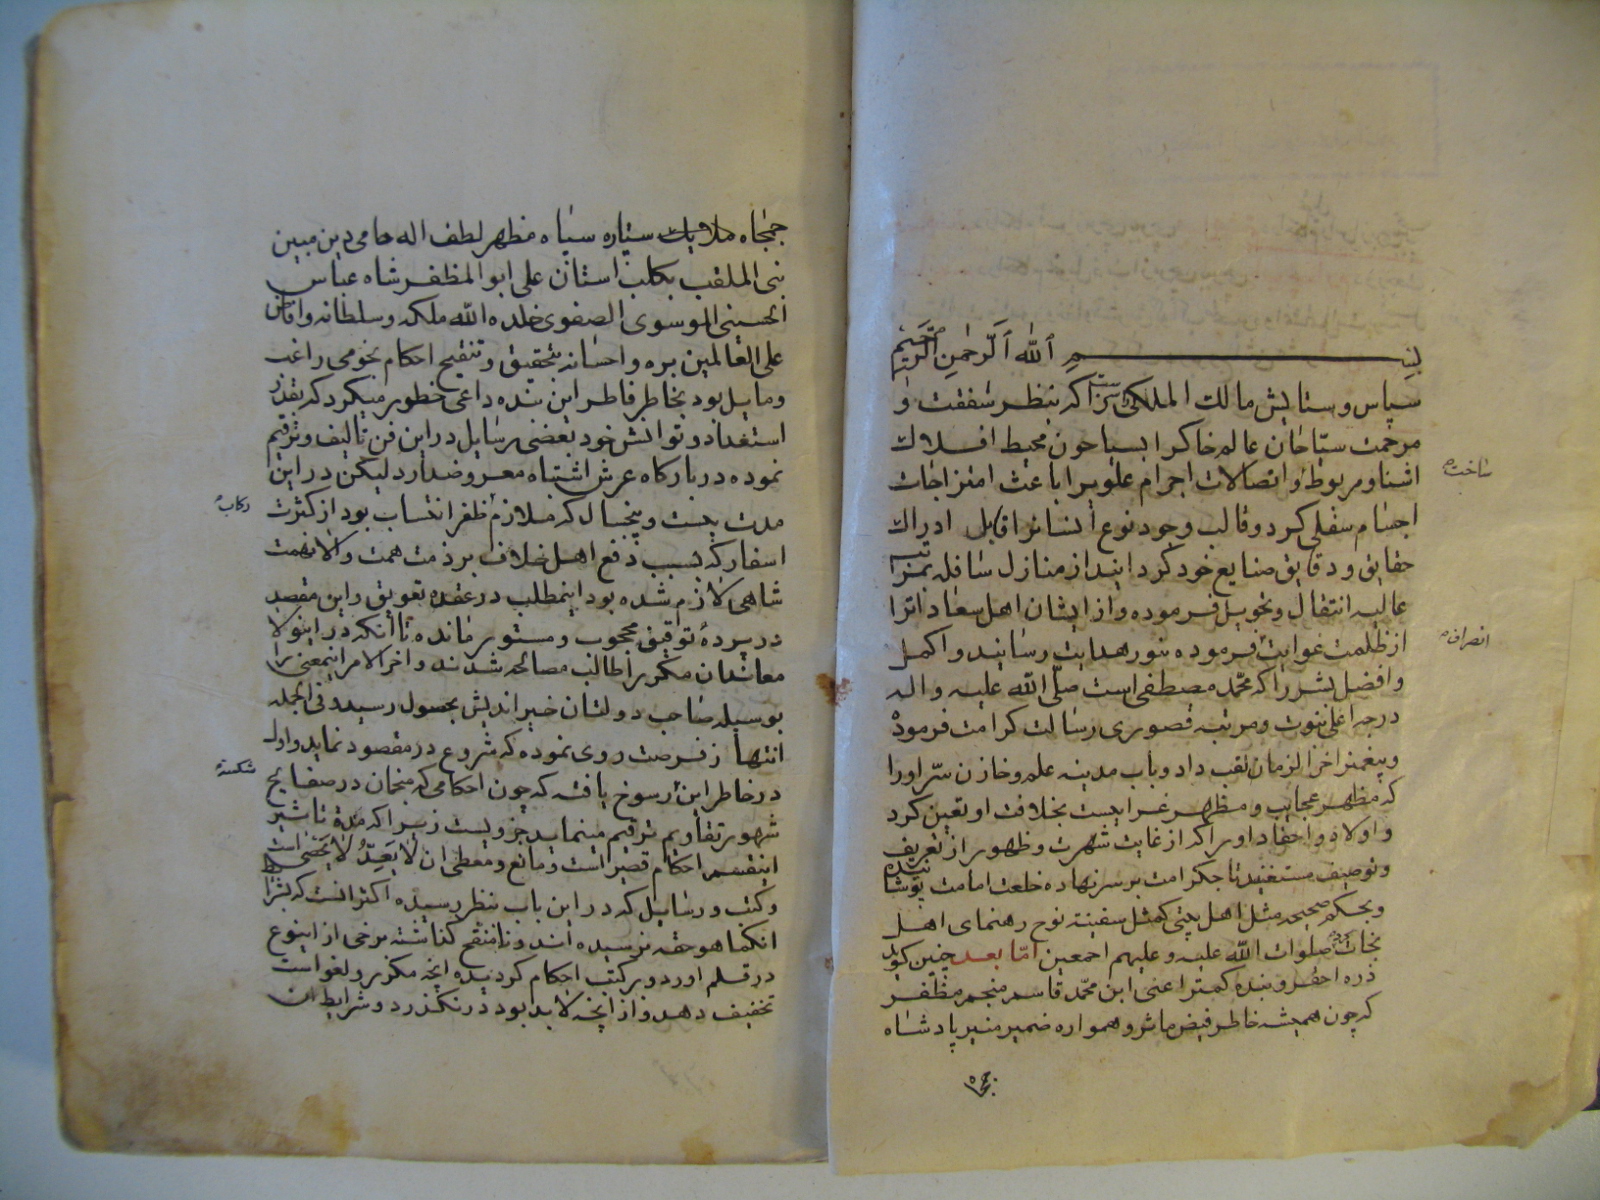 بسم الله الرحمن الرحيم
سپاس و ستایش مالک الملکی را سزا که بنظر شفقت و
مرحمت ستاخان عالم خاکرا بسباحون محیط افلاک
اشنا و مربوط و اتصالات اجرام علویرا باعث امتزاجات
ساخت
اجسام سفلی کرد و قالب وجود نوع انسانرا قابل ادراک
حقایق و دقایق صنایع خود کردانید از منازل سافله بمراتب
عالیه انتقال و تحویل فرموده و از ایشان اهل سعاداترا
از ظلمت غوایت فرموده بنور هدایت رسانید و اکمل
انصراف
و افضل بشر را که محمد مصطفی است صلی الله علیه و اله
درجه اعلی نبوت و مرتبه قصوری رسالت کرامت فرموده
و پیغمبر اخر الزمان لقب داد و باب مدینه علم و خازن سر او را
که مظهر عجایب و مظهر غرایبست بخلافت او تعین کرد
و اولاد و احفاد او را که از غایت شهرت و ظهور از تعریف
و توصیف مستغنیند تاج کرامت بر سر نهاده خلعت امامت پوشانیده
و بحکم صحیحه مثل اهل بیتی کمثل سفینة نوح رهنمای اهل
نجات صلوات الله علیه و علیهم اجمعین اما بعد چنین کوید
ذره احقر و بنده کمتر اعنی ابن محمد قاسم منجم مظفر
که چون همیشه خاطر فیض ماثر و همواره ضمیر منیر پادشاه
جمجاه
جمجاه ملایک ستاره سپاه مظهر لطف اله حامی دین مبین
نبی الملقب بکلب استان علی ابو المظفر شاه عباس
الحسینی الموسوی الصفوی خلده الله ملکه و سلطانه و افاض
علی العالمین بره و احسانه بتحقیق و تنقیح احکام نجومی راغب
و مایل بود بخاطر فاطر این بنده داعی خطور میکرد که بقدر
استعداد و توانش خود بعضی رسایل در این فن تالیف و ترقیم
نموده در بارکاه عرش اشتباه معروض دارد لیکن در این
مدت بیست و پنجسال که ملازم ظفر انتساب بود از کثرت
رکاب
اسفار که بسبب دفع اهل خلاف بر ذمت همت والانهمت
شاهی لازم شده بود اینمطلب در عقده تعویق و این مقصد
در پرده توقیق محجوب و مستور مانده تا انکه در اینولا
معاندان مکرر را طالب مصالحه شدند و اخر الامر اینمعنی را
بوسیله صاحب دولتان خیر اندیش بحصول رسید و فی الجمله
انتها ز فرصت روی نموده که شروع در مقصود نماید و اولا
در خاطر این رسوخ یافته که چون احکامی که منجمان در صفایح
شکسته
شهور تقاویم ترقیم مینماید جزویست زیرا که مدة تاثیر
اینقسم احکام قصیر است و مانع و معطی ان لا یعد و لا یحصی است
و کتب و رسایل که در این باب بنظر رسیده اکثر انست که بشرایط
انکما هو حقه نرسیده اند و نامنقح کذاشته برخی از اینوع
در قلم اورد و بر کتب احکام کردیده انچه مکرر و لغو است
تخفیف دهد و از انچه لابد بود در نکذرد و شرایط ان